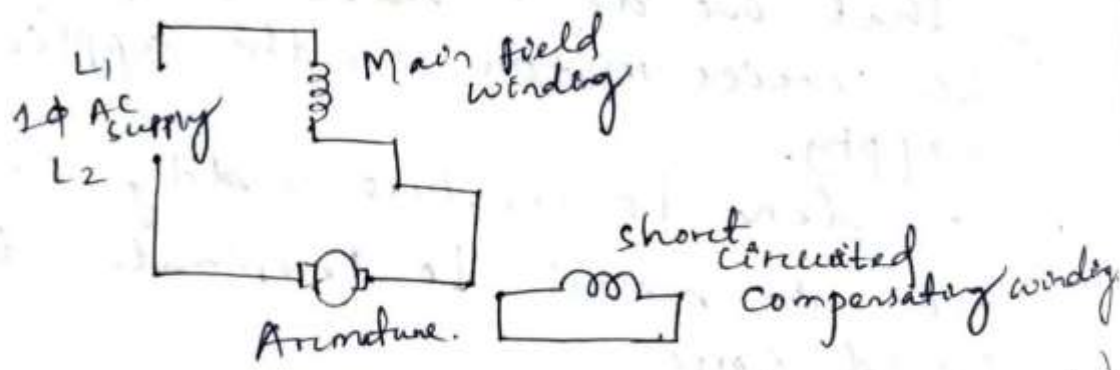 L1
1φ AC
supply
L2
Main field
winding
Armature.
short
circuited
compensating winding